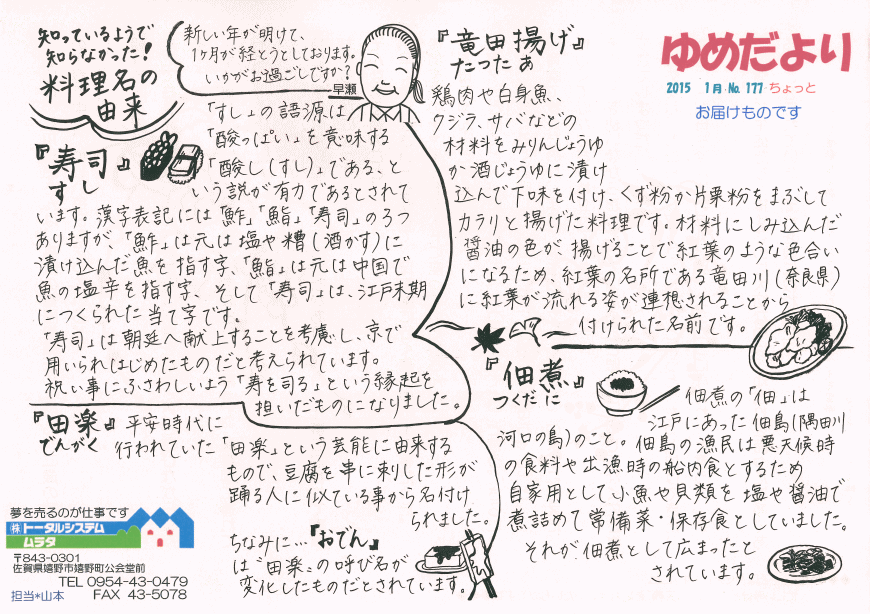 知っているようで
知らなかった!
料理名の
由来
新しい年が明けて、
1ヶ月が経とうとしております。
いかがお過ごしですか?
早瀬
ゆめだより
2015 1月 No. 177 ちょっと
お届けものです
『寿司』
すし
「すし」の語源は
「酸っぱい」を意味する
「酸し(すし)」である、と
いう説が有力であるとされて
います。漢字表記には「鮓」「鮨」「寿司」の3つ
ありますが、「鮓」は元は塩や糟(酒かす)に
漬け込んだ魚を指す字、「鮨」は元は中国で
魚の塩辛を指す字、そして「寿司」は、江戸末期
につくられた当て字です。
「寿司」は朝廷へ献上することを考慮し、京で
用いられはじめたものだと考えられています。
祝い事にふさわしいよう「寿を司る」という縁起を
担いだものになりました。
『田楽』
でんがく
平安時代に
行われていた「田楽」という芸能に由来する
もので、豆腐を串に刺した形が
踊る人に似ている事から名付け
られました。
ちなみに…『おでん』
は“田楽”の呼び名が
変化したものだとされています。
『竜田揚げ』
たつた あ
鶏肉や白身魚、
クジラ、サバなどの
材料をみりんじょうゆ
か酒じょうゆに漬け
込んで下味を付け、くず粉か片栗粉をまぶして
カラリと揚げた料理です。材料にしみ込んだ
醤油の色が揚げることで紅葉のような色合い
になるため、紅葉の名所である竜田川(奈良県)
に紅葉が流れる姿が連想されることから
付けられた名前です。
『佃煮』
つくだに
佃煮の「佃」は
江戸にあった佃島(隅田川
河口の島)のこと。佃島の漁民は悪天候時
の食料や出漁時の船内食とするため
自家用として小魚や貝類を塩や醤油で
煮詰めて常備菜・保存食としていました。
それが佃煮として広まったと
されています。
夢を売るのが仕事です
(株)トータルシステム
ムラタ
〒843-0301
佐賀県嬉野市嬉野町公会堂前
TEL 0954-43-0479
担当*山本 FAX 43-5078